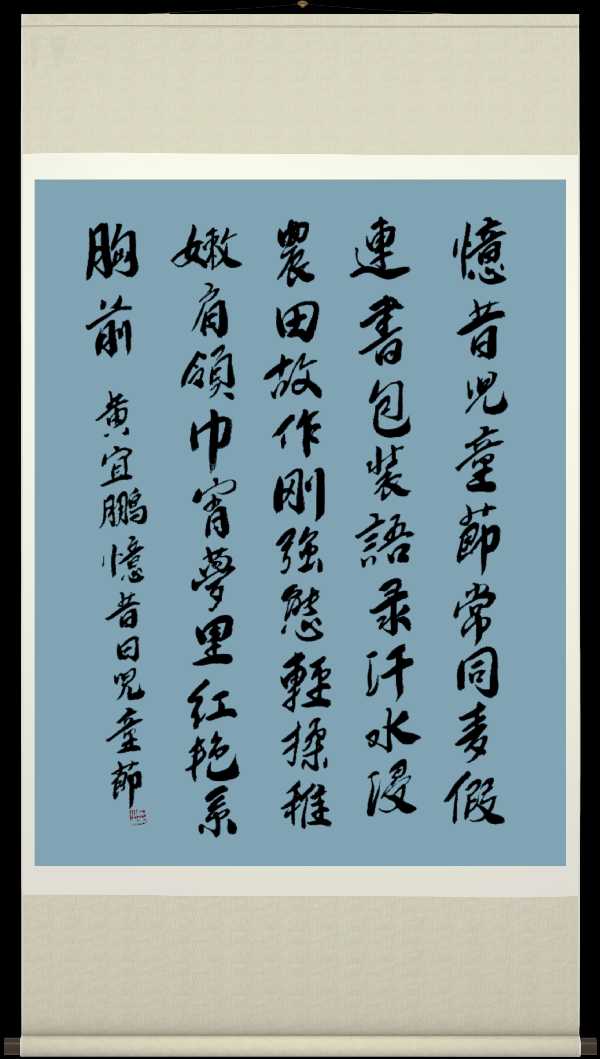 憶昔児童節常同麦假
連書包装語录汗水浸
農田故作刚強態輕揉稚
嫩肩領巾宵夢里红艳系
胸前
黄宜鹏憶昔日児童節